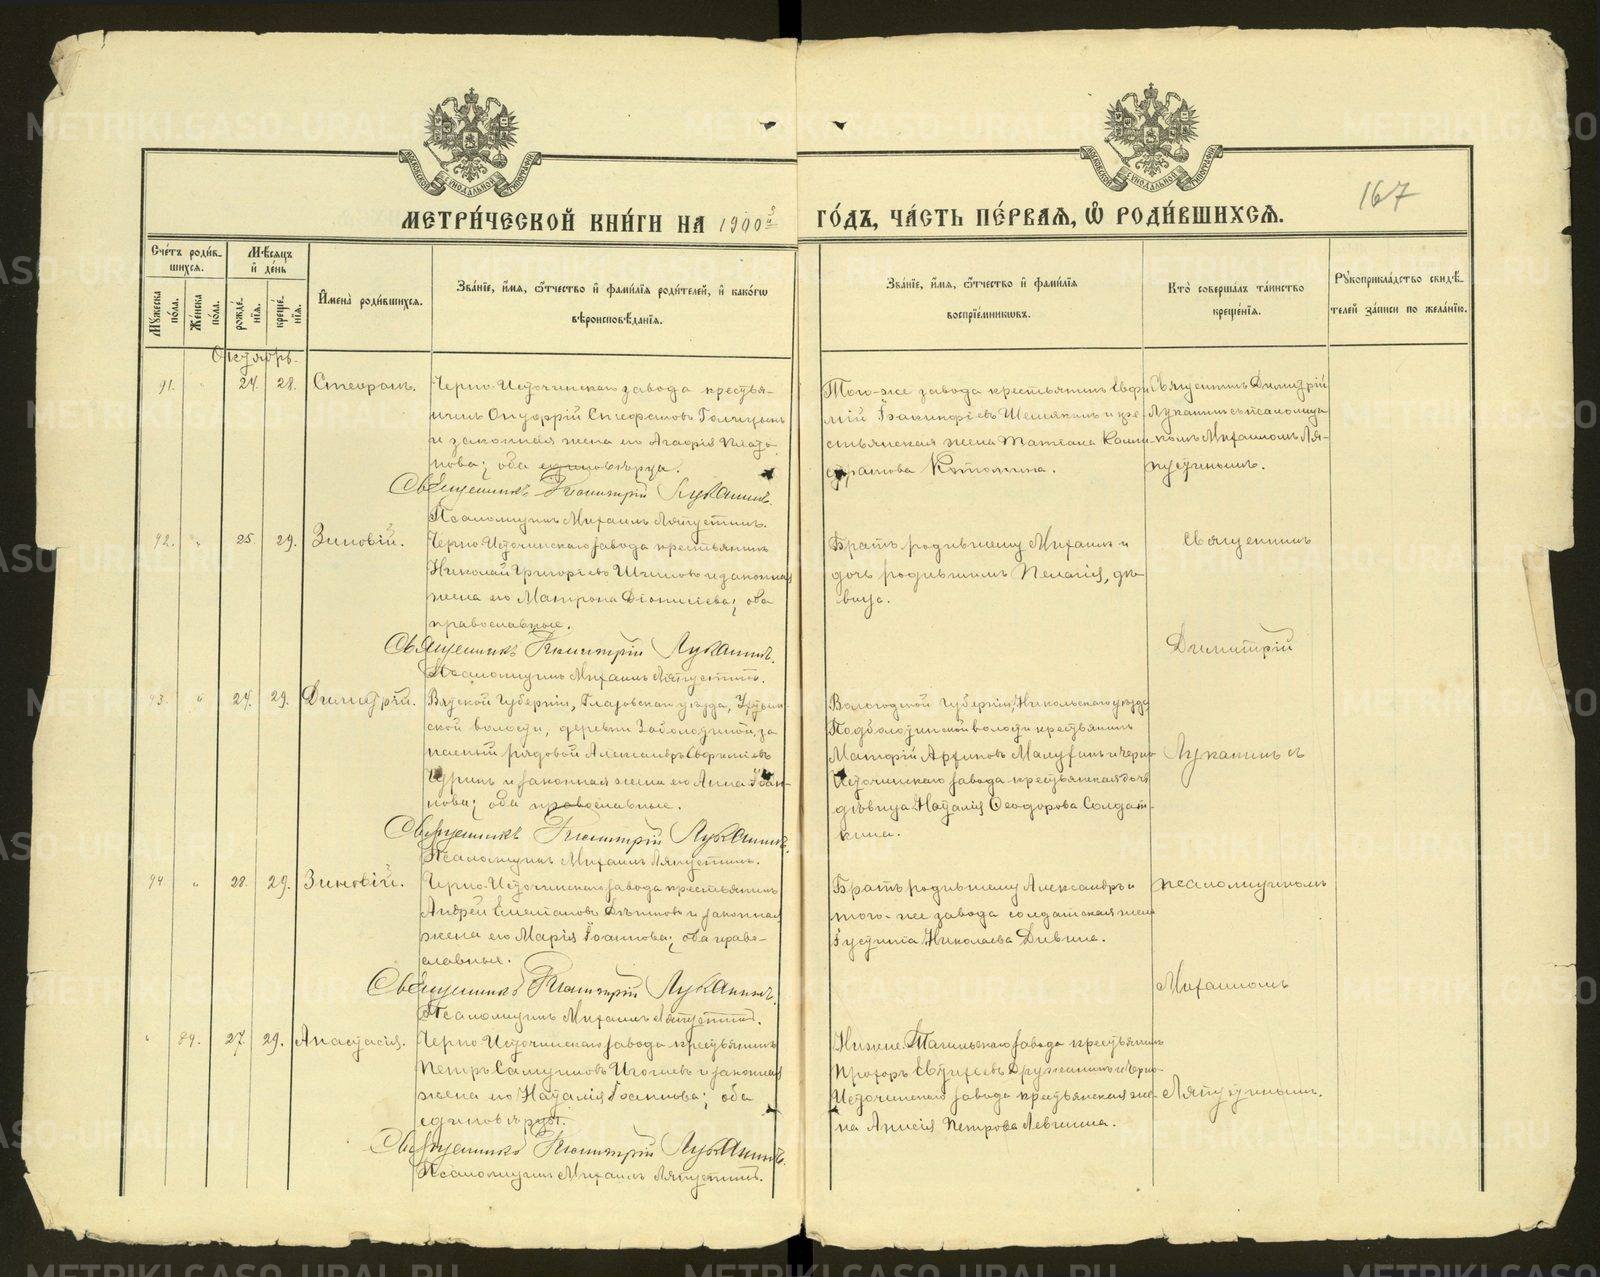 167
МЕТРИ́ЧЕСКОЙ КНИ́ГИ НА 1900й ГО́ДЪ, ЧА́СТЬ ПЕ́РВАѦ, Ѡ҆ РОДИ́ВШИХСѦ.
Сче́тъ роди́в-
шихсѧ.
Мꙋжеска по́ла.
Же́нска по́ла.
Мѣ́сѧцъ и҆ де́нь
рожде́нїѧ.
креще́нїѧ.
И҆мена̀ роди́вшихсѧ.
Зва́нїе, и҆́мѧ, ѻ҆́тчество и҆ фамѝлїѧ роди́телей, и҆ како́гѡ
вѣроисповѣ́данїѧ.
Зва́нїе, и҆́мѧ, ѻ҆́тчество и҆ фамѝлїѧ
воспрїе́мникѡвъ.
Кто̀ соверша́лъ та́инство
креще́нїѧ.
Рꙋкоприкла́дство свидѣ́-
телей за́писи по жела́нїю.
Октябрь.
91. " 24. 28. Стефанъ.
Черно-Источинскаго завода крестья-
нинъ Онуфрій
и законная жена его Агафія Плато-
нова; оба единовѣрцы.
Священникъ Димитрій Луканинъ.
Псаломщикъ Михаилъ Ляпустинъ.
Того-же завода крестьянинъ Евфи-
мій и кре-
стьянская жена Татіана Калли-
стратова
Священникъ Димитрій
Луканинъ съ псаломщи-
комъ Михаиломъ Ля-
пустинымъ.
92. " 25. 29. Зиновій.
Черно-Источинскаго завода крестьянинъ
Николай Григоріевъ и законная
жена его Матрона Діонисіева; оба
православные.
Священникъ Димитрій Луканинъ.
Псаломщикъ Михаилъ Ляпустинъ.
Братъ родившему Михаилъ и
дочь родившимъ Пелагія, дѣ-
вица.
Священникъ
Димитрій
93. " 24. 29. Димитрій.
Вятской губерніи, Глазовскаго уѣзда,
ской волости, деревни Заболотной, за-
пасный рядовой Александръ
и законная жена его Анна Іоан-
нова; оба православные.
Священникъ Димитрій Луканинъ.
Псаломщикъ Михаилъ Ляпустинъ.
Вологодской губерніи, Никольскаго уѣзда
Подболотинской волости крестьянинъ
и Черно-
Источинскаго завода крестьянская дочь
дѣвица Наталія Ѳеодорова Солдат-
кина.
Луканинъ съ
94. " 28. 29. Зиновій.
Черно-Источинскаго завода крестьянинъ
Андрей и законная
жена его Марія Іоаннова; оба право-
славные.
Священникъ Димитрій Луканинъ.
Псаломщикъ Михаилъ Ляпустинъ.
Братъ родившему Александръ и
того-же завода солдатская жена
Іустина Николаева
псаломщикомъ
Михаиломъ
" 89. 27. 29. Анастасія.
Черно-Источинскаго завода крестьянинъ
Петръ и законная
жена его Наталія Іоаннова; оба
единовѣрцы.
Священникъ Димитрій Луканинъ.
Псаломщикъ Михаилъ Ляпустинъ.
Нижне-Тагильскаго завода крестьянинъ
Прохоръ Дружининъ и Черно-
Источинскаго завода крестьянская же-
на Анисія Петрова
Ляпустинымъ.
METRIKI.GASO-URAL.RU